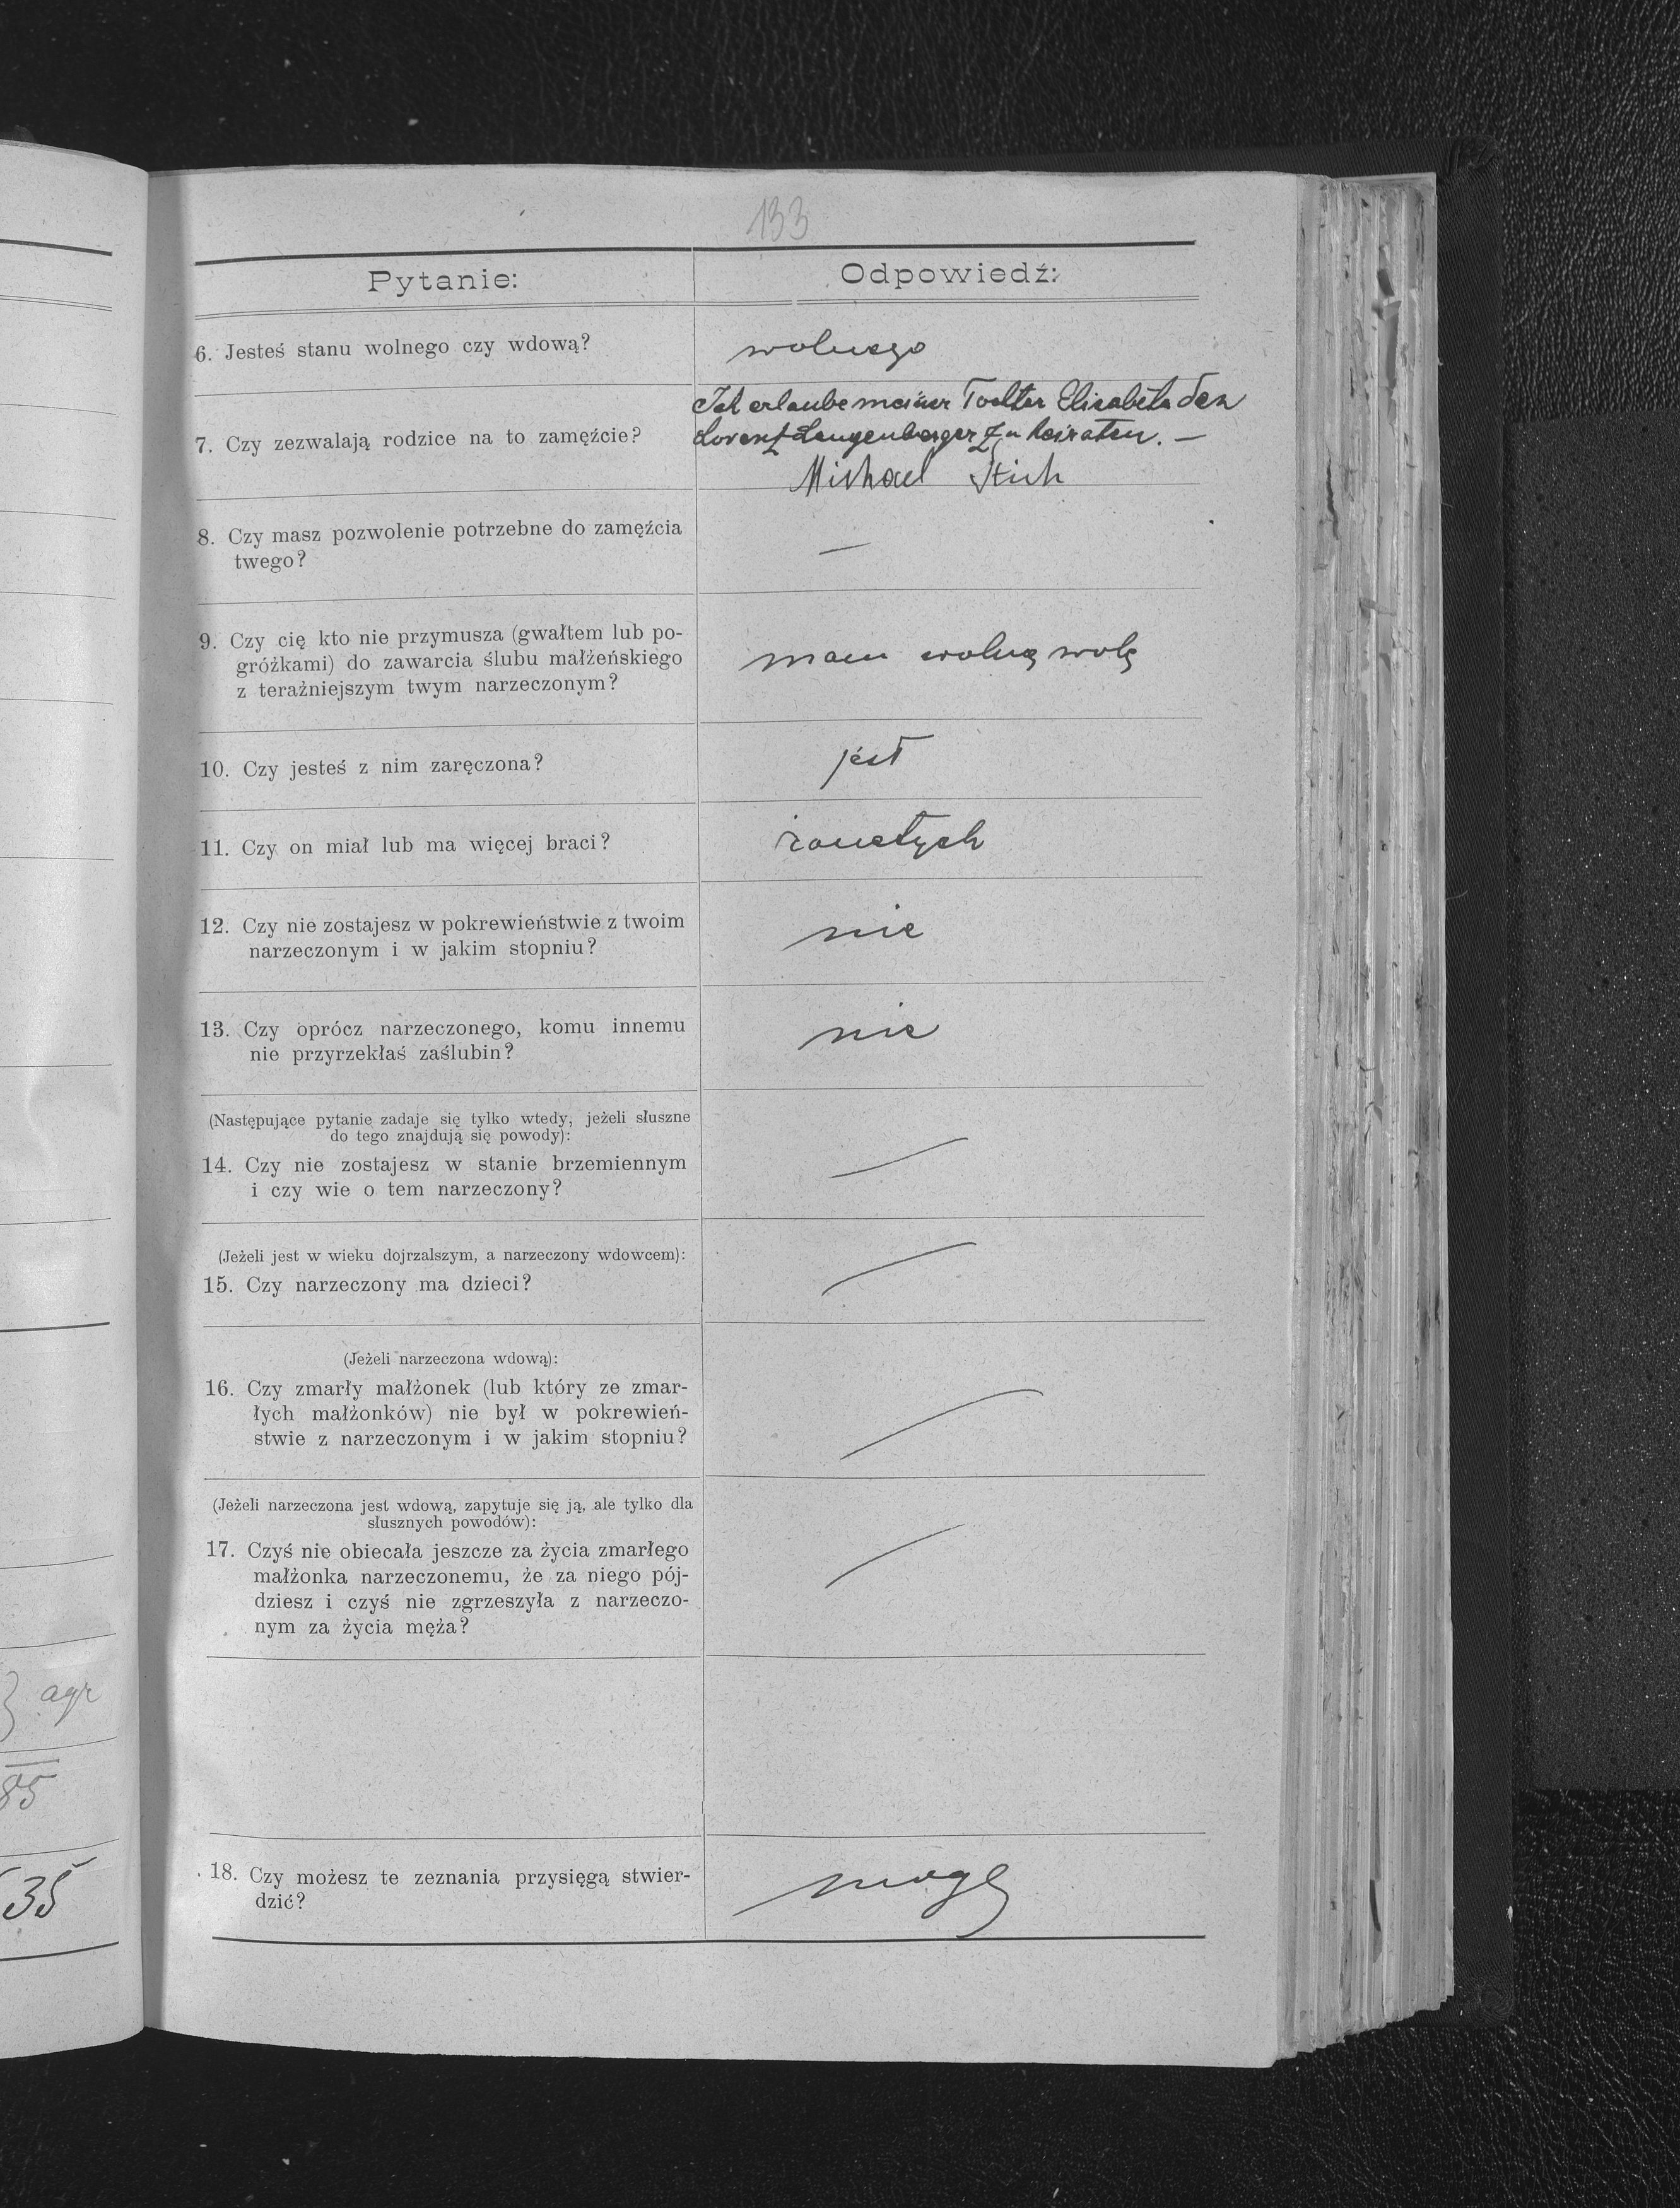 133
Pytanie:
Odpowiedź:
6. Jesteś stanu wolnego czy wdową?
wolnego
7. Czy zezwalają rodzice na to zamęźcie?
Ich erlaube meiner Tochter Elisabeta den
Lorenz Langenberger zu heiraten. —
Michael Stich
8. Czy masz pozwolenie potrzebne do zamęźcia
twego?
—
9. Czy cię kto nie przymusza (gwałtem lub po-
gróżkami) do zawarcia ślubu małżeńskiego
z teraźniejszym twym narzeczonym?
mam wolną wolę
10. Czy jesteś z nim zaręczona?
jest
11. Czy on miał lub ma więcej braci?
12. Czy nie zostajesz w pokrewieństwie z twoim
narzeczonym i w jakim stopniu?
nie
13. Czy oprócz narzeczonego, komu innemu
nie przyrzekłaś zaślubin?
nie
(Następujące pytanie zadaje się tylko wtedy, jeżeli słuszne
do tego znajdują się powody):
14. Czy nie zostajesz w stanie brzemiennym
i czy wie o tem narzeczony?
—
(Jeżeli jest w wieku dojrzalszym, a narzeczony wdowcem):
15. Czy narzeczony ma dzieci?
—
(Jeżeli narzeczona wdową):
16. Czy zmarły małżonek (lub który ze zmar-
łych małżonków) nie był w pokrewień-
stwie z narzeczonym i w jakim stopniu?
—
(Jeżeli narzeczona jest wdową, zapytuje się ją, ale tylko dla
słusznych powodów):
17. Czyś nie obiecała jeszcze za życia zmarłego
małżonka narzeczonemu, że za niego pój-
dziesz i czyś nie zgrzeszyła z narzeczo-
nym za życia męża?
—
18. Czy możesz te zeznania przysięgą stwier-
dzić?
mogę
agr
85
35